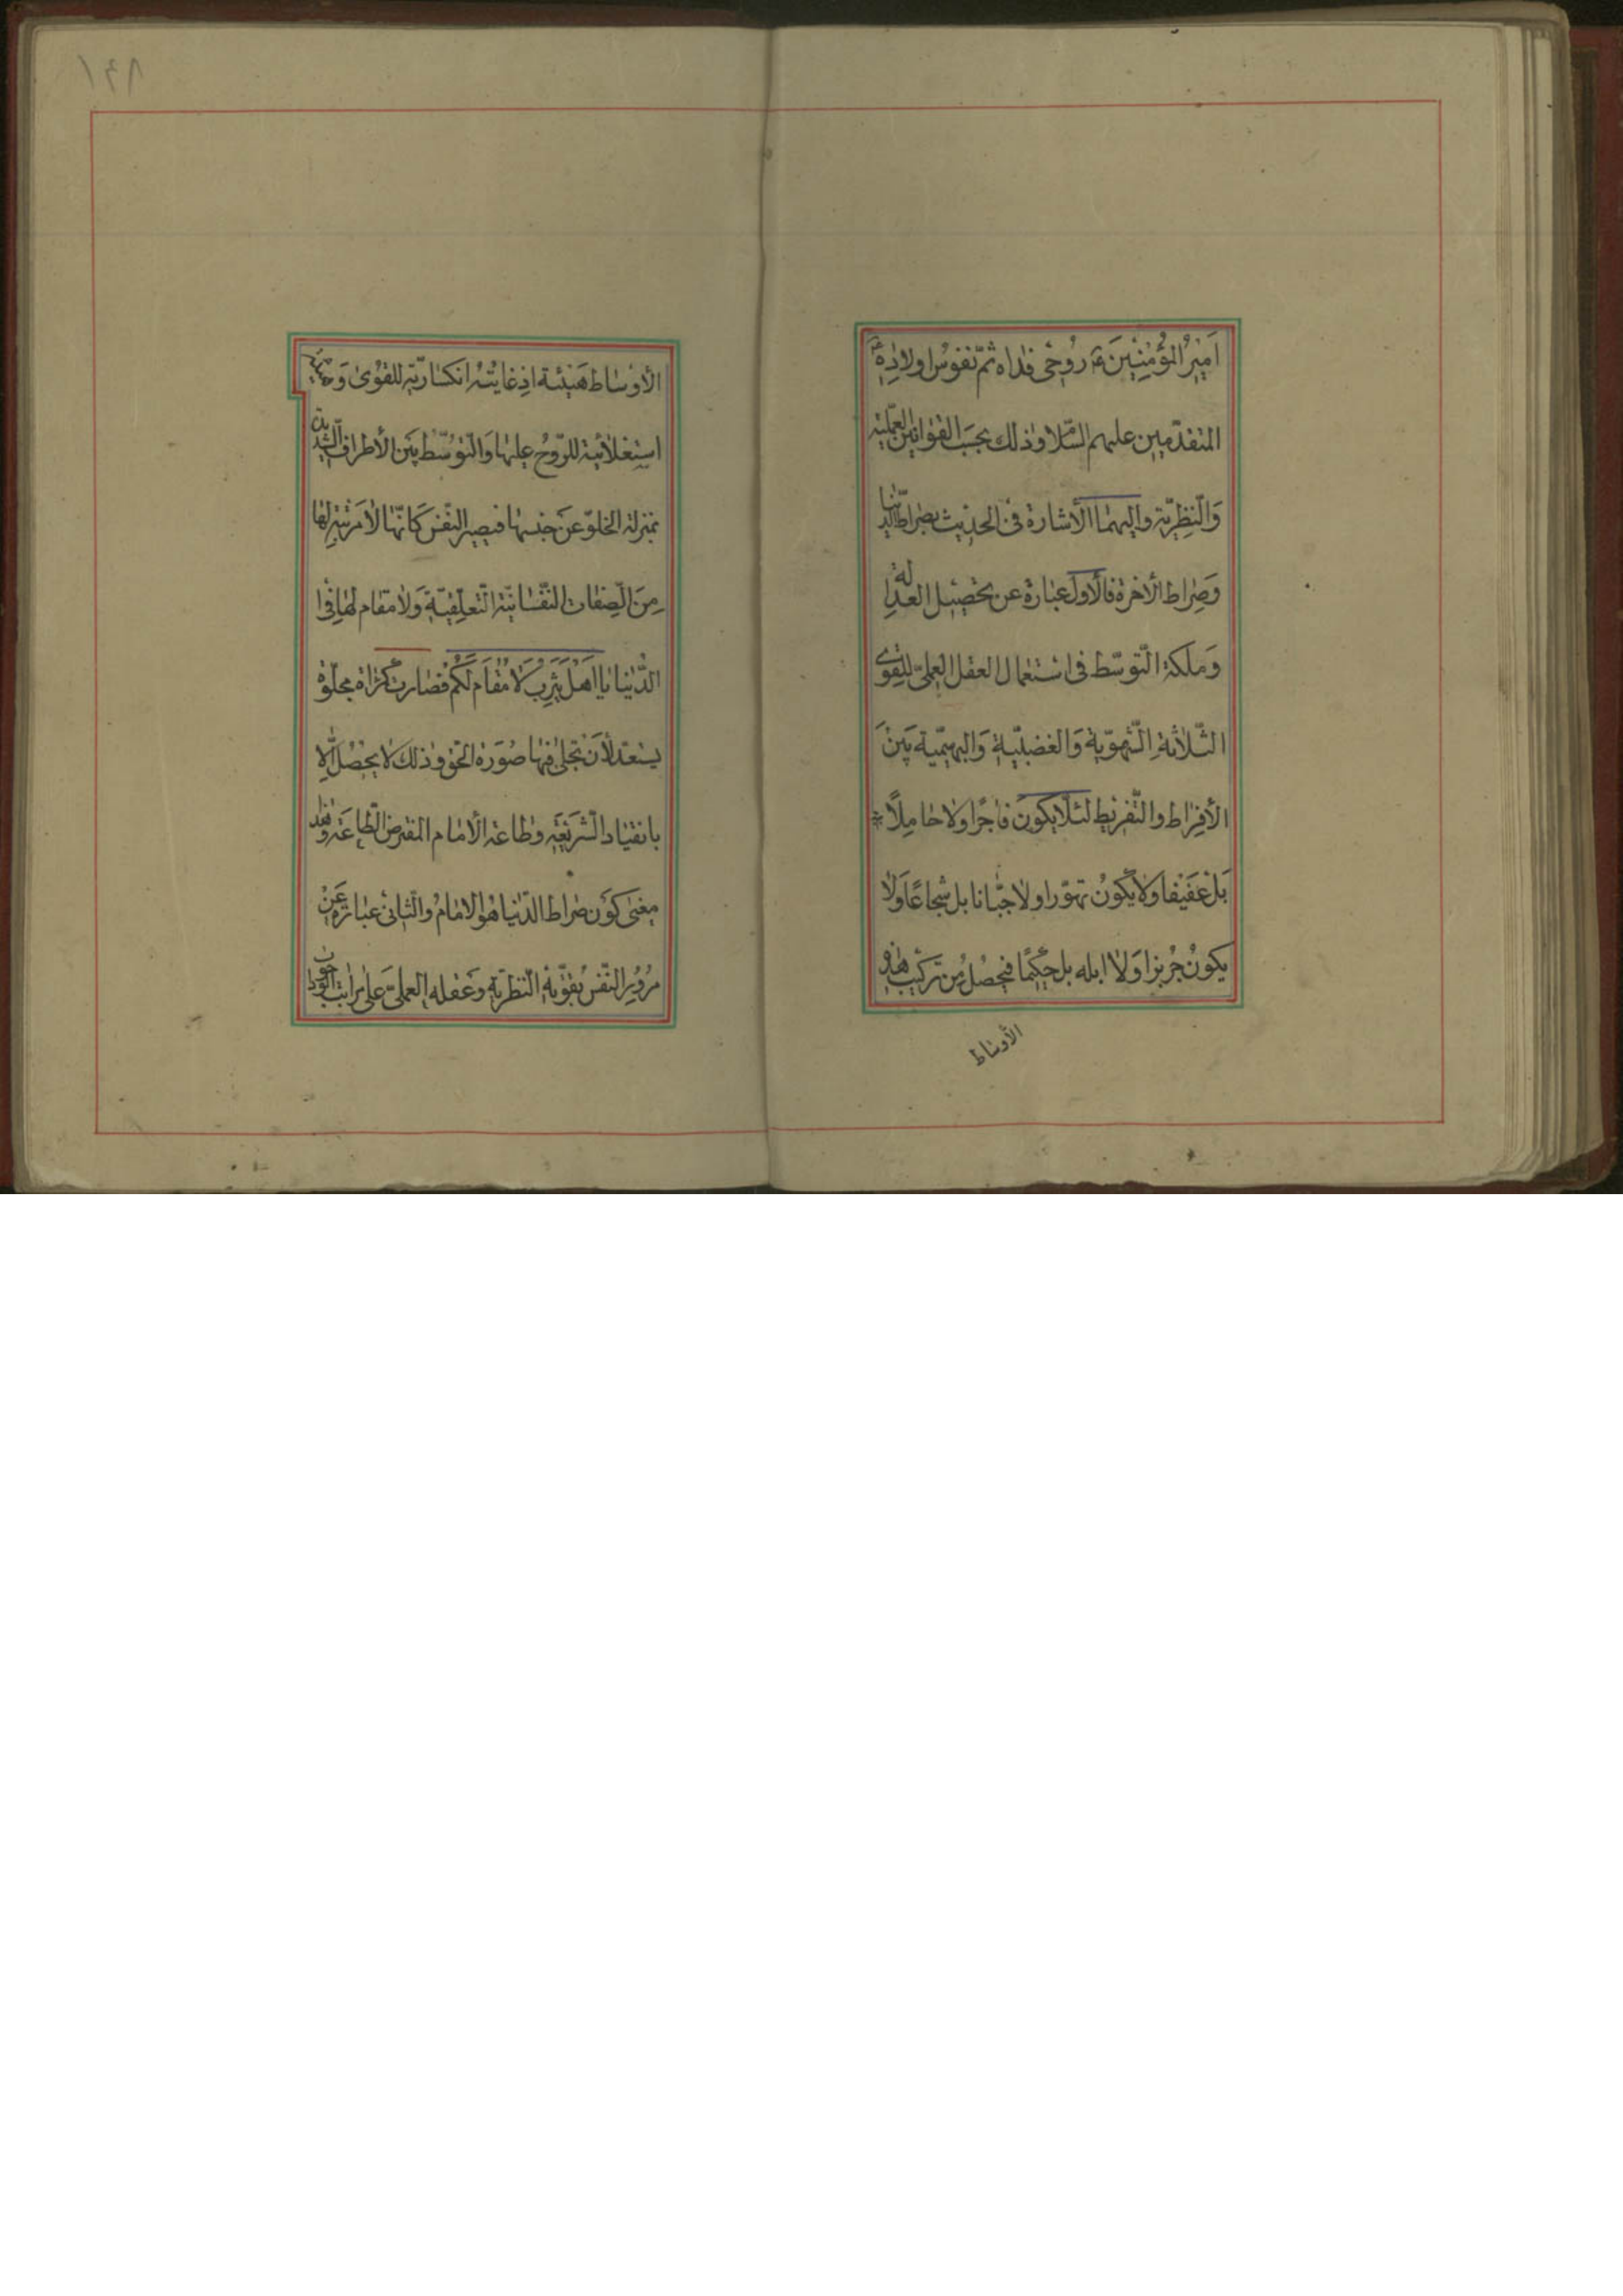 اَمیرُ المُؤْمِنینَ ع رُوحی فداه ثمّ نفوسُ اولادِهِ
المتقدّمین علیهم السّلام وذلک بحسَب القوانین العملیّة
وَالنّظِریّة والیهما الأشارة فی الحدیث بصِراط الدّنیا
وَصِراط الأخرة فالأول عبارة عن تحصیل العدالة
وَملکة التّوسّط فی استعمال العقل العملیّ للقوی
الثّلاثة الشّهویّة وَالغضبیّة وَالبهیمّیة بَینَ
الأفراط والتّفریط لئلّا یکونَ فاجرًا ولا خامِلًا
بَل عَفیفا ولا یکونُ تهوّرا ولا جبّانا بل شجاعًا وَلا
یکونُ جُربزا وَلا ابله بل حکیمًا فیحصُل مِن ترکیب هذه
الأوساط
الأوساط هَیئة اذعانیّة انکساریّة للقوی وَهیئة
استعلائیة للرّوح علیها وَالتّوسّط بَین الأطراف الشّدیدة
بمنزلة الخلوّ عَن جنسها فیصیر النّفس کانّها لا مَرتبة لها
مِنَ الصّفات النّفسانیّة التّعلّقیّة وَلا مقام لها فی
الدّنیا یا اَهْلَ یَثرِبَ لا مُقامَ لَکُم فصارت کمرآة مجلوّة
یستعدّ لأن تجلی فیها صُورَة الحقّ وذلک لا یحصُل الّا
بانقیاد الشّریعَة وطاعة الأمام المفترض الطّاعَة وهذا
معنی کَون صراط الدّنیا هو الامام والثّانی عبارة عَن
مرُورِ النّفس بقوّته النّظریّة وعَقله العملیّ علی مراتب الموجودات